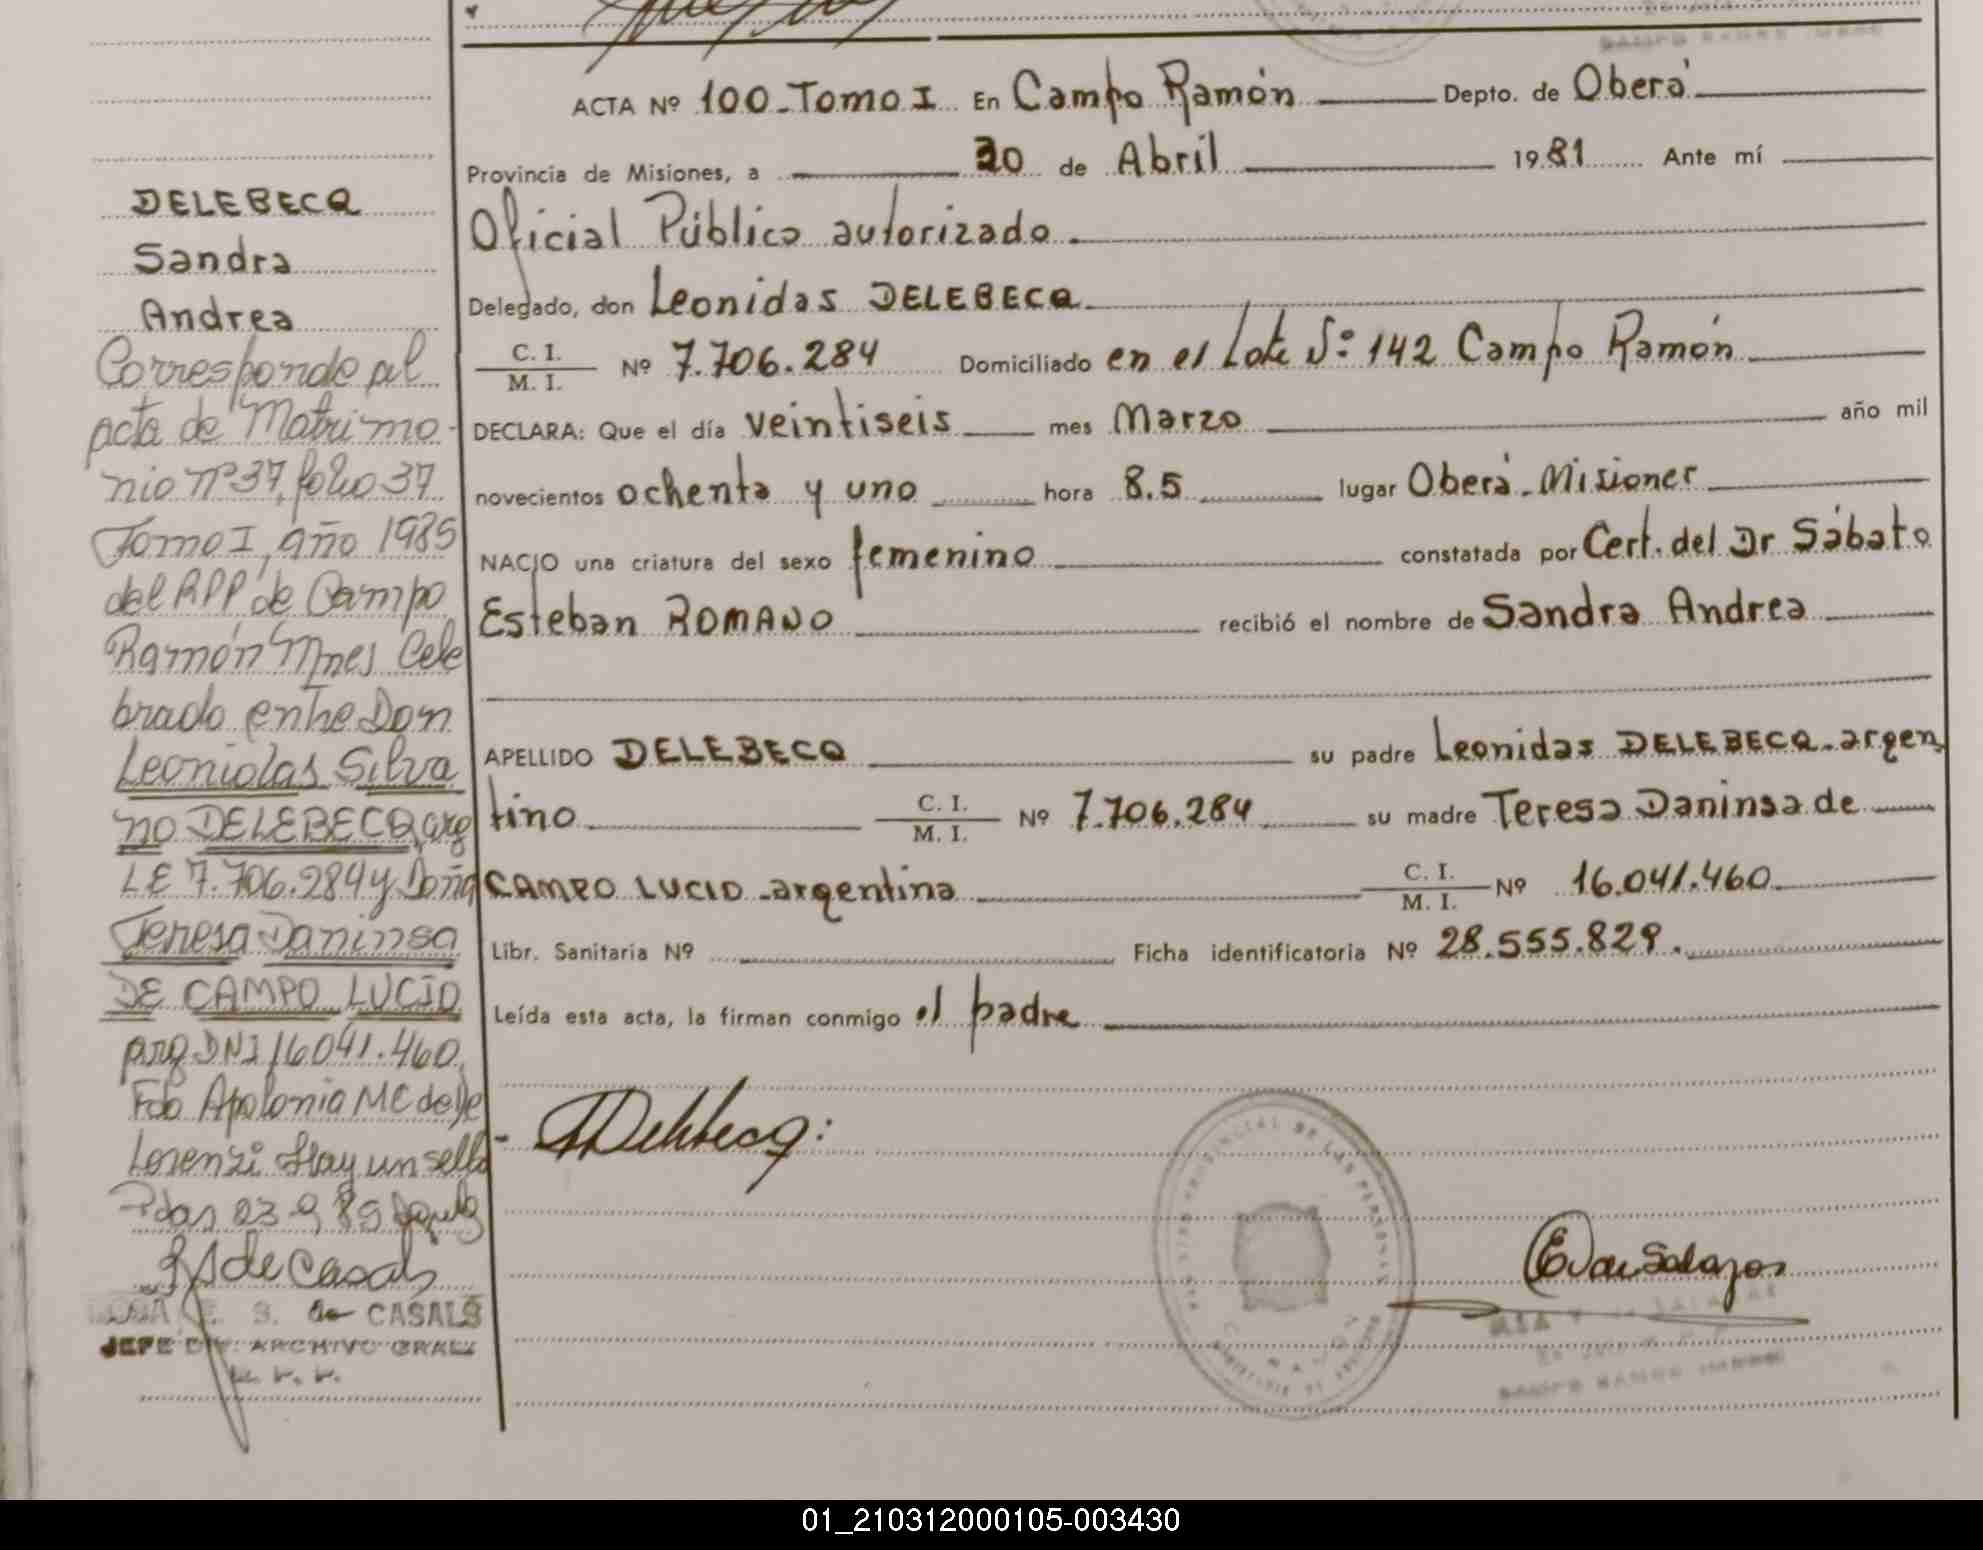 ACTA Nº 100 - Tomo I En Campo Ramón Depto. de Oberá
Provincia de Misiones, a 20 de Abril 1981 Ante mí
Oficial Público autorizado
Delegado, don Leonidas DELEBECQ
C. I.
M. I. Nº 7.706.284 Domiciliado en el Lote Nº 142 Campo Ramón
DECLARA: Que el día veintiseis mes Marzo año mil
novecientos ochenta y uno hora 8.5 lugar Oberá - Misiones
NACIO una criatura del sexo femenino constatada por Cert. del Dr Sábato
Esteban ROMANO recibió el nombre de Sandra Andrea
APELLIDO DELEBECQ su padre Leonidas DELEBECQ - argen
tino C. I.
M. I. Nº 7.706.284 su madre Teresa Daninsa de
CAMPO LUCIO - argentina C. I.
M. I. Nº 16.041.460
Libr. Sanitaria Nº Ficha identificatoria Nº 28.555.829.
Leída esta acta, la firman conmigo el padre
Delebecq:
DELEBECQ
Sandra
Andrea
Corresponde al
acta de Matrimo-
nio nº 37, folio 37
Tomo I, año 1985
del RPP de Campo
Ramón Mnes Cele
brado entre Don
Leonidas Silva
no DELEBECQ, arg
LE 7.706.284 y Doña
Teresa Daninsa
DE CAMPO LUCIO
arg DNI 16041.460
Fdo Apolonia MC de De
Lorenzi Hay un sello
Pdas 03 9 85
de Casals
S. de CASALS
JEFE DIV. ARCHIVO GRAL.
E de Salazar
CAMPO RAMON
01_210312000105-003430